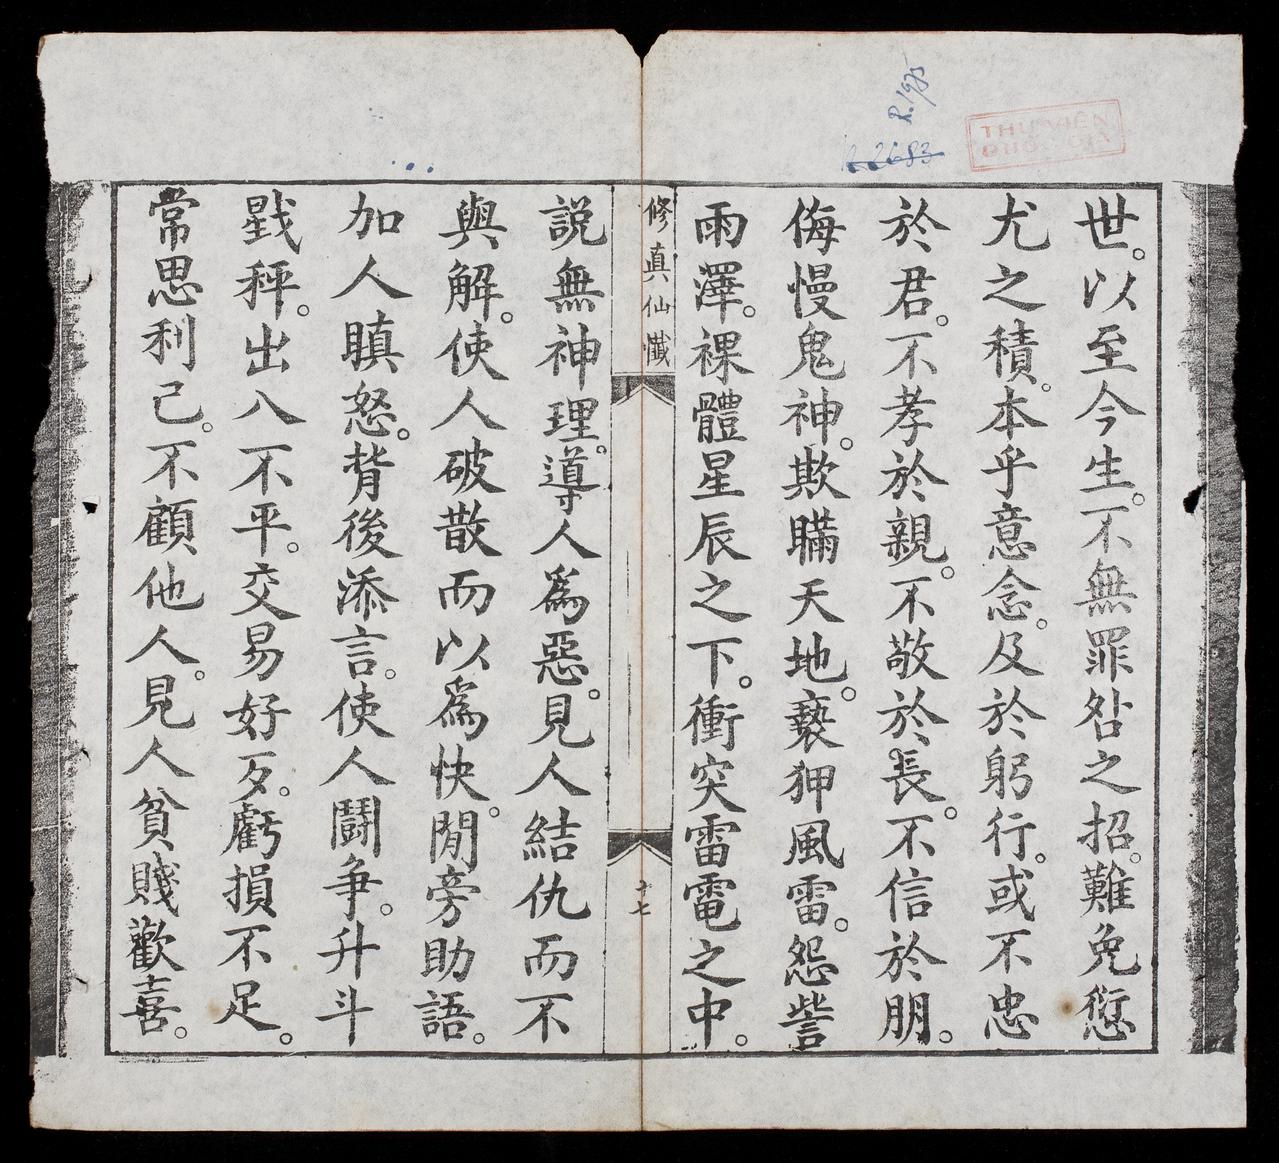 R.1975
R.2683
THƯ VIỆN
QUỐC GIA
世。以至今生。不無罪咎之招。難免愆
尤之積。本乎意念。及於躬行。或不忠
於君。不孝於親。不敬於長。不信於朋。
侮慢鬼神。欺瞞天地。褻狎風雷。怨訾
雨澤。裸體星辰之下。衝突雷電之中。
修真仙懺
十七
説無神理。導人爲惡。見人結仇而不
與解。使人破散而以爲快。閒旁助語。
加人瞋怒。背後添言。使人鬪爭。升斗
戥秤。出八不平。交易好歹。虧損不足。
常思利己。不顧他人。見人貧賤歡喜。